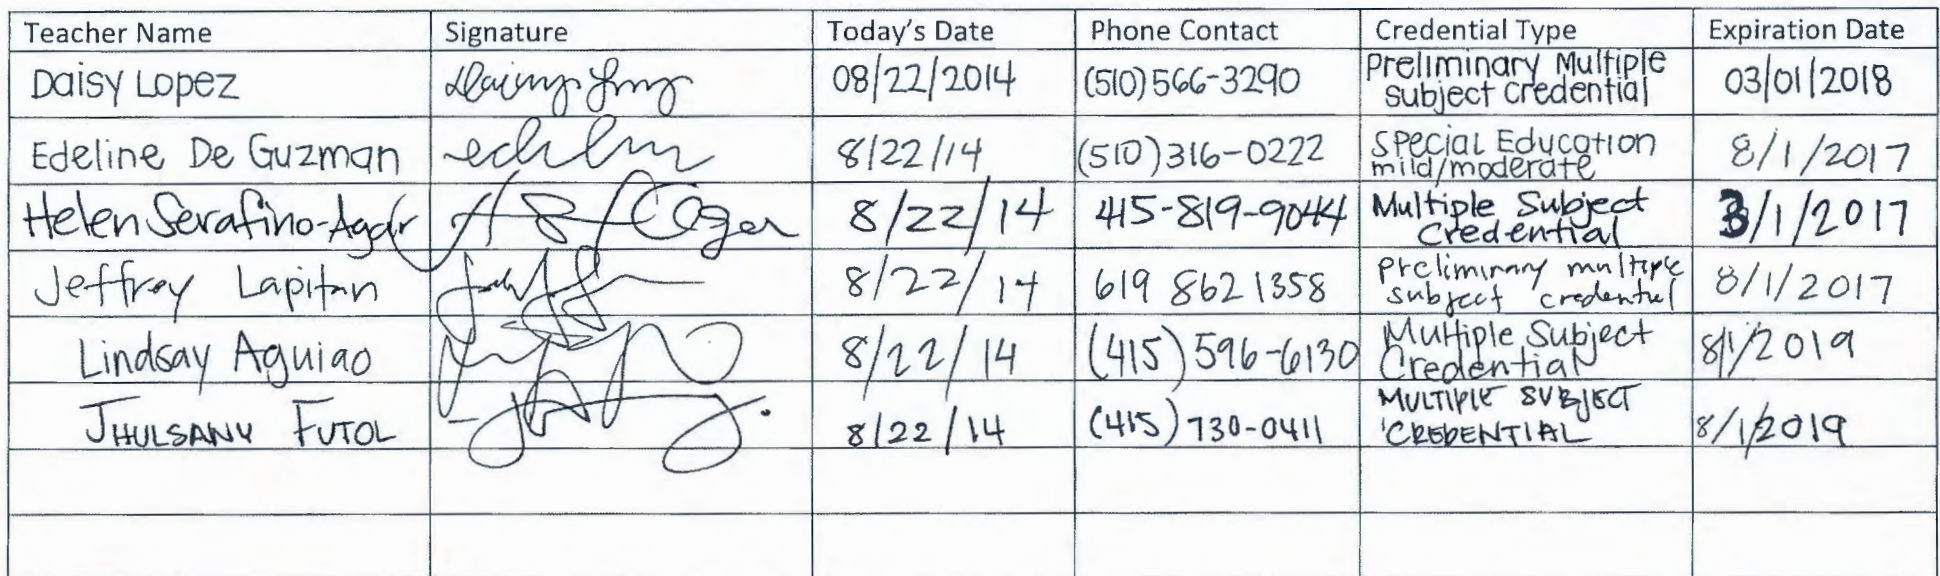 Teacher Name Signature Today's Date Phone Contact Credential Type Expiration Date
Daisy Lopez 08/22/2014 (510)566-3290 Preliminary Multiple subject credential 03/01/2018
Edeline De Guzman 8/22/14 (510)316-0222 special Education mild/moderate 8/1/2017
Helen Serafino-Agar 8/22/14 415-819-9044 Multiple Subject Credential 3/1/2017
Jeffrey Lapitan 8/22/14 619 862 1358 preliminary multiple subject credential 8/1/2017
Lindsay Aguiao 8/22/14 (415) 596-6130 Multiple Subject Credential 8/1/2019
JHULSANY FUTOL 8/22/14 (415) 730-0411 MULTIPLE SUBJECT CREDENTIAL 8/1/2019